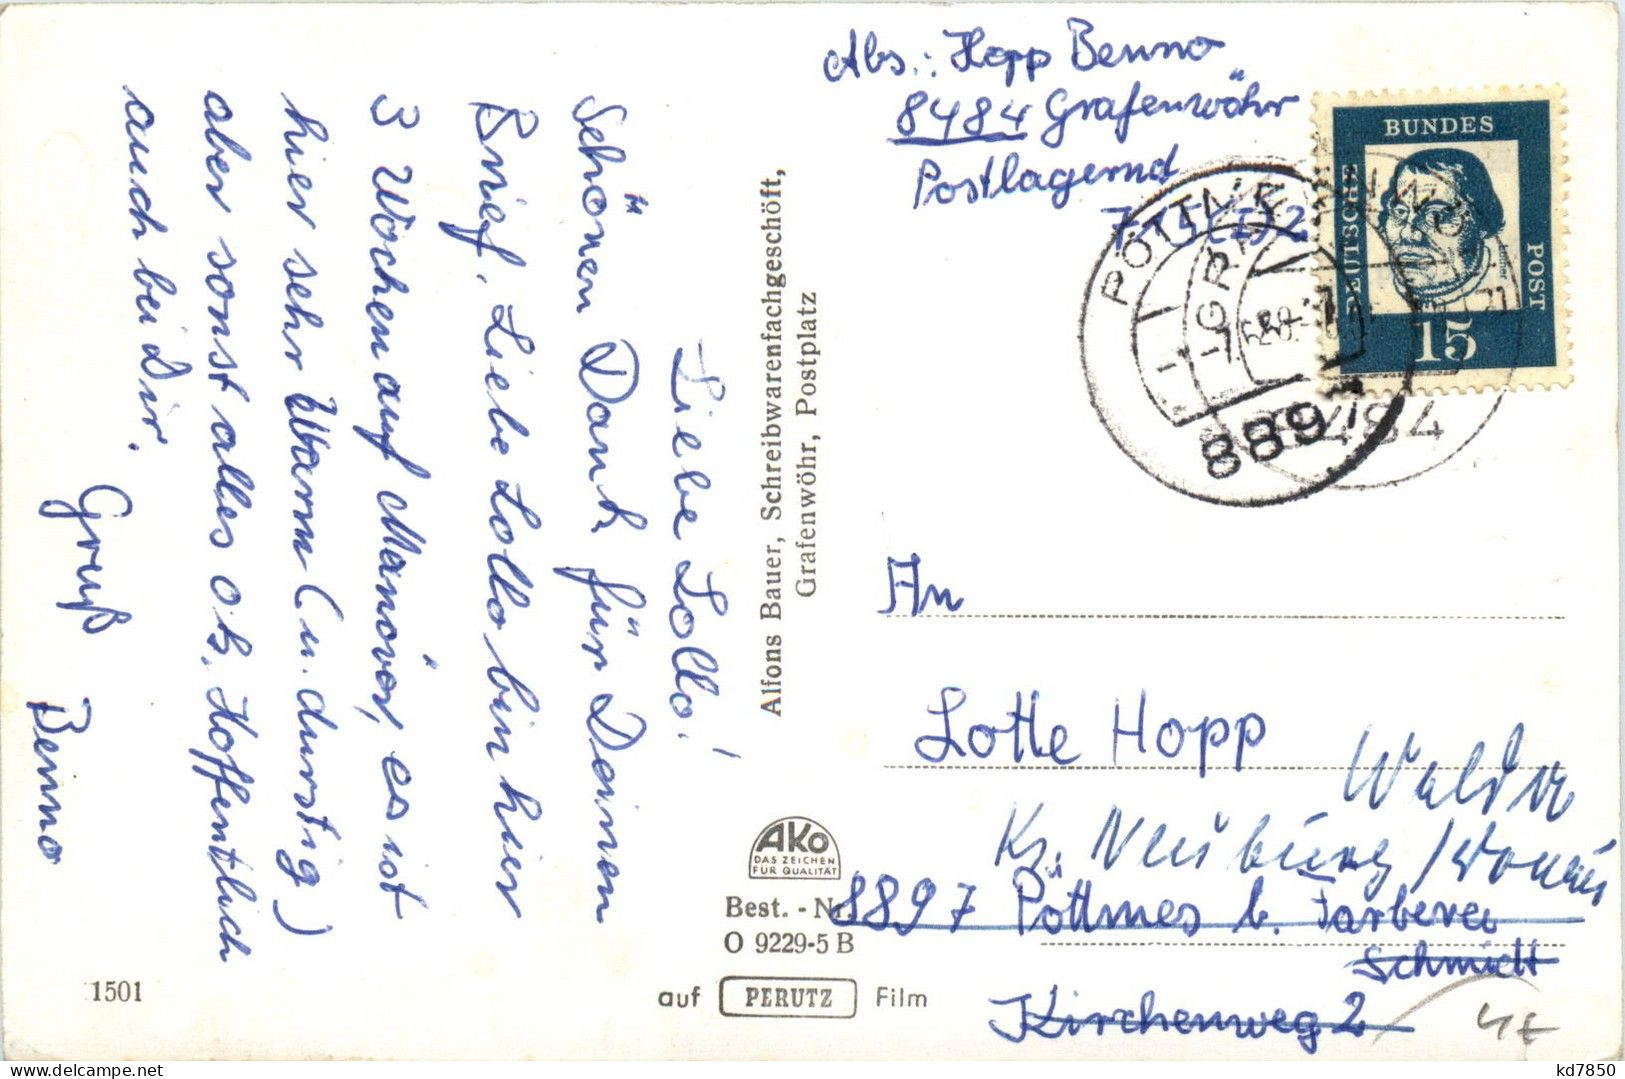 Liebe Lollo!
Schönen Dank für Deinen
Brief. Liebe Lollo bin hier
3 Wochen auf Manöver, es ist
hier sehr Warm (u. durstig)
aber sonst alles ok. Hoffentlich
auch bei Dir.
Gruß
Benno
1501
Alfons Bauer, Schreibwarenfachgeschöft,
Grafenwöhr, Postplatz
AKO
DAS ZEICHEN
FÜR QUALITÄT
Best. - Nr.
O 9229-5 B
auf PERUTZ Film
Abs.: Hopp Benno
8484 Grafenwöhr
Postlagernd
DEUTSCHE
BUNDES
POST
15
PÖTTMES
8897
8484
An
Lotte Hopp
Walda
Kr. Neuburg/Donau
8897 Pöttmes b. Färberei
Schmidt
Kirchenweg 2
kd7850